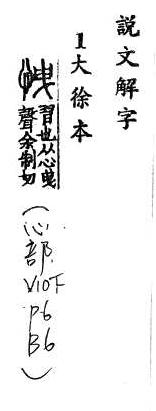 說文解字
1大徐本
習也从心曳
聲余制切
(心部.
V10F
P6
B6)